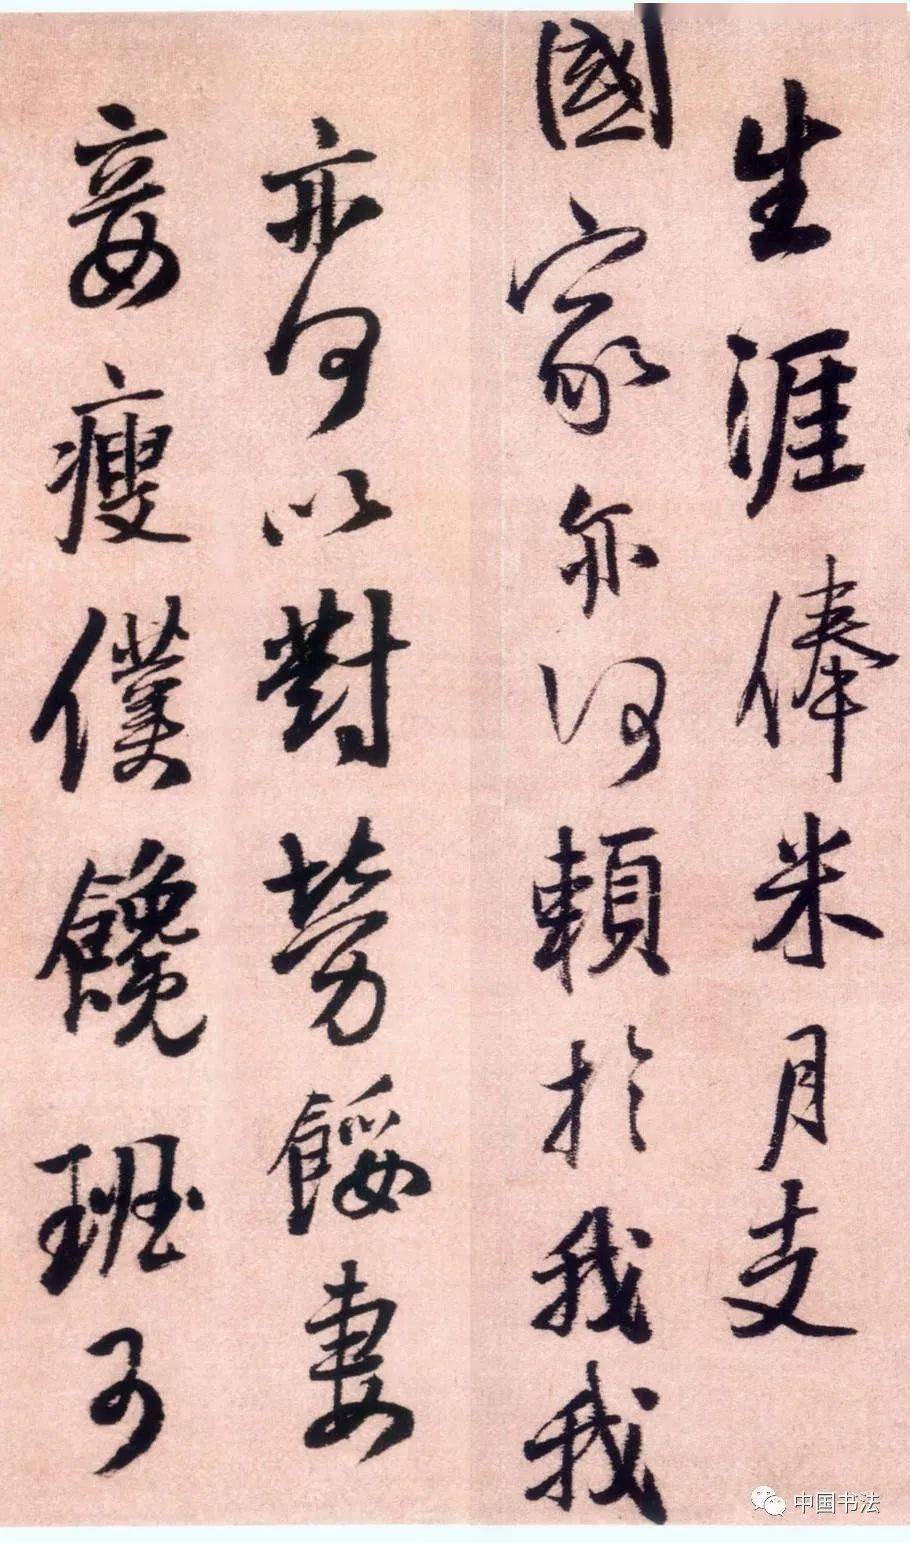 生涯俸米月支
國家亦何賴於我我
亦何以對勞餒妻
妾瘦僕饞班可
中国书法